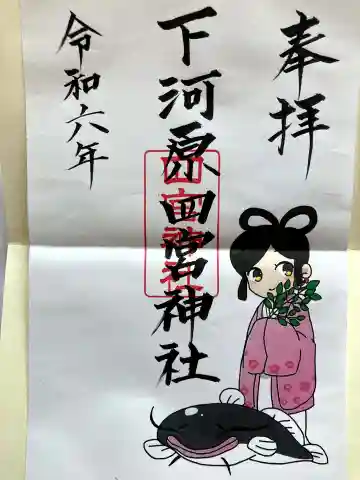 奉拝
下河原四宮神社
令和六年